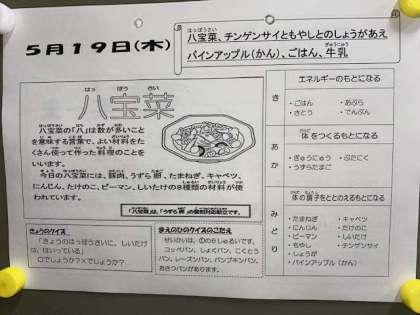 5月19日(木)
八宝菜、チンゲンサイともやしとのしょうがあえ
パインアップル(かん)、ごはん、牛乳
はっ ぽう さい
八宝菜
八宝菜の「八」は数が多いこと
を意味する言葉で、よい材料をた
くさん使って作った料理のことを
いいます。
今日の八宝菜には、豚肉、うずら卵、たまねぎ、キャベツ、
にんじん、たけのこ、ピーマン、しいたけの8種類の材料が使
われています。
「八宝菜」は、「うずら卵」の個別対応献立です。
きょうのクイズ
「きょうのはっぽうさいに、しいたけ
は、はいっている」
○でしょうか?×でしょうか?
まえのひのクイズのこたえ
せいかいは、①の6しゅるいです。
コッペパン、しょくパン、こくとう
パン、レーズンパン、パンプキンパン、
おさつパンがあります。
き
エネルギーのもとになる
・ごはん ・あぶら
・さとう ・でんぷん
あか
体をつくるもとになる
・ぎゅうにゅう ・ぶたにく
・うずらたまご
みどり
体の調子をととのえるもとになる
・たまねぎ ・キャベツ
・にんじん ・たけのこ
・ピーマン ・しいたけ
・もやし ・チンゲンサイ
・しょうが
・パインアップル(かん)